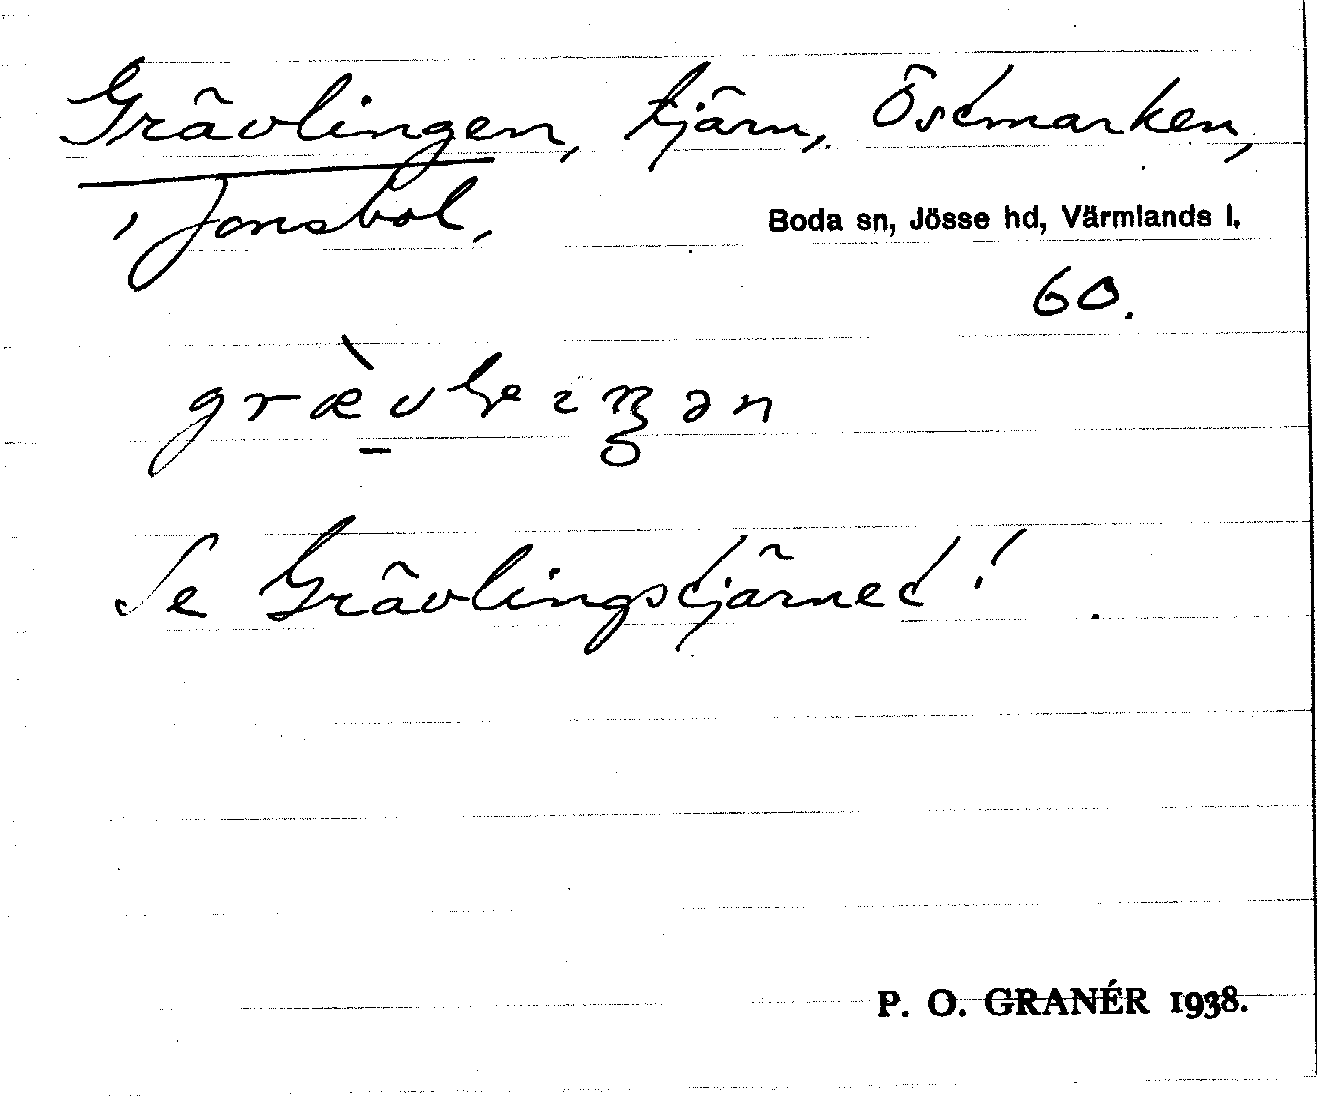 Grävlingen, tjärn, Östmarken,
i Jonsbol.
Boda sn, Jösse hd, Värmlands l.
60.
Se Grävlingstjärnet!
P. O. GRANÉR 1938.